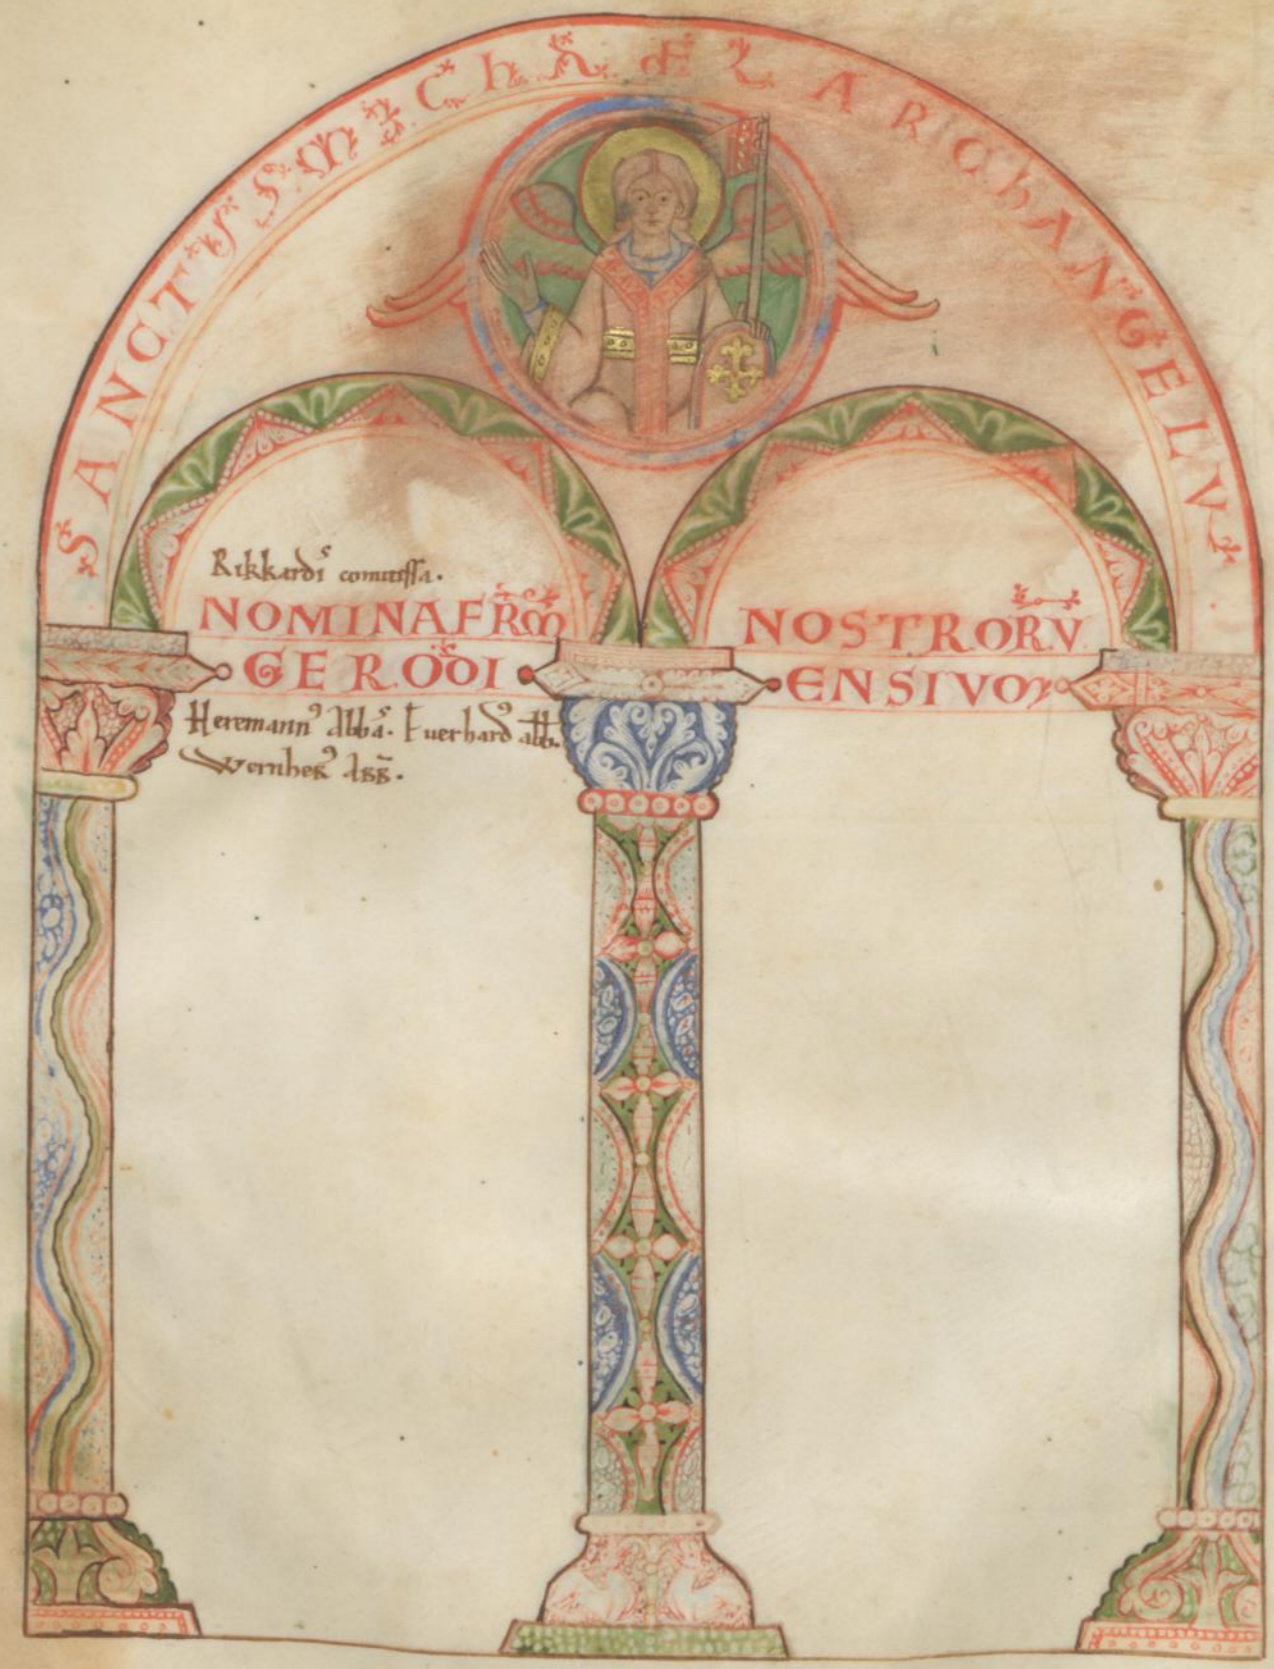 SANCTVS MICHAEL ARCHANGELVS
Rikkardis comitissa.
NOMINA FRM NOSTRORV
GERODI ENSIVM
Heremann⁹ abba. Euerhard⁹ abb.
Wernher⁹ abb.